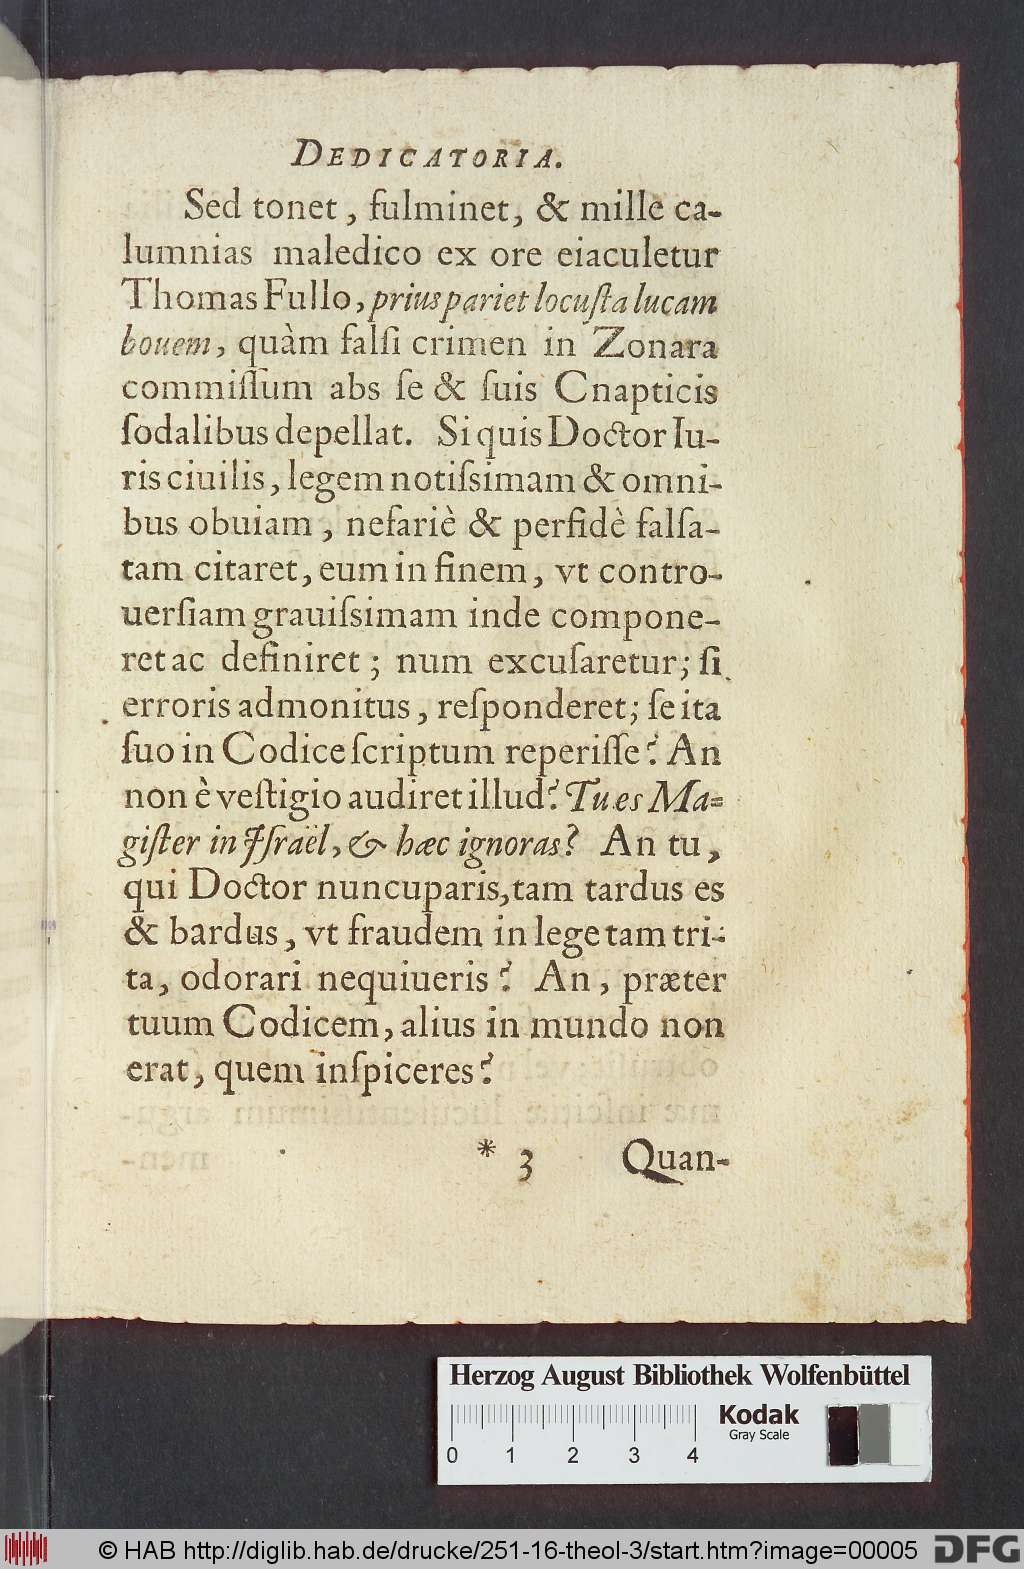 DEDICATORIA.
Sed tonet, fulminet, & mille ca-
lumnias maledico ex ore eiaculetur
Thomas Fullo, prius pariet locuſta lucam
bouem, quàm falſi crimen in Zonara
commiſſum abs ſe & ſuis Cnapticis
ſodalibus depellat. Si quis Doctor Iu-
ris ciuilis, legem notiſsimam & omni-
bus obuiam, nefariè & perfidè falſa-
tam citaret, eum in finem, vt contro-
uerſiam grauiſsimam inde compone-
ret ac definiret; num excuſaretur; ſi
erroris admonitus, reſponderet; ſe ita
ſuo in Codice ſcriptum reperiſſe? An
non è veſtigio audiret illud? Tu es Ma-
giſter in Iſraël, & hæc ignoras? An tu,
qui Doctor nuncuparis, tam tardus es
& bardus, vt fraudem in lege tam tri-
ta, odorari nequiueris? An, præter
tuum Codicem, alius in mundo non
erat, quem inſpiceres?
* 3 Quan-
Herzog August Bibliothek Wolfenbüttel
Kodak
Gray Scale
0 1 2 3 4
© HAB http://diglib.hab.de/drucke/251-16-theol-3/start.htm?image=00005
DFG